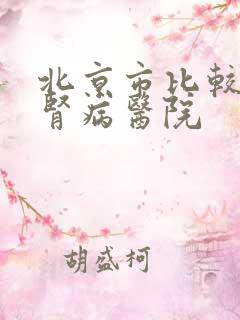 北京市比較
腎病醫院
胡盛柯